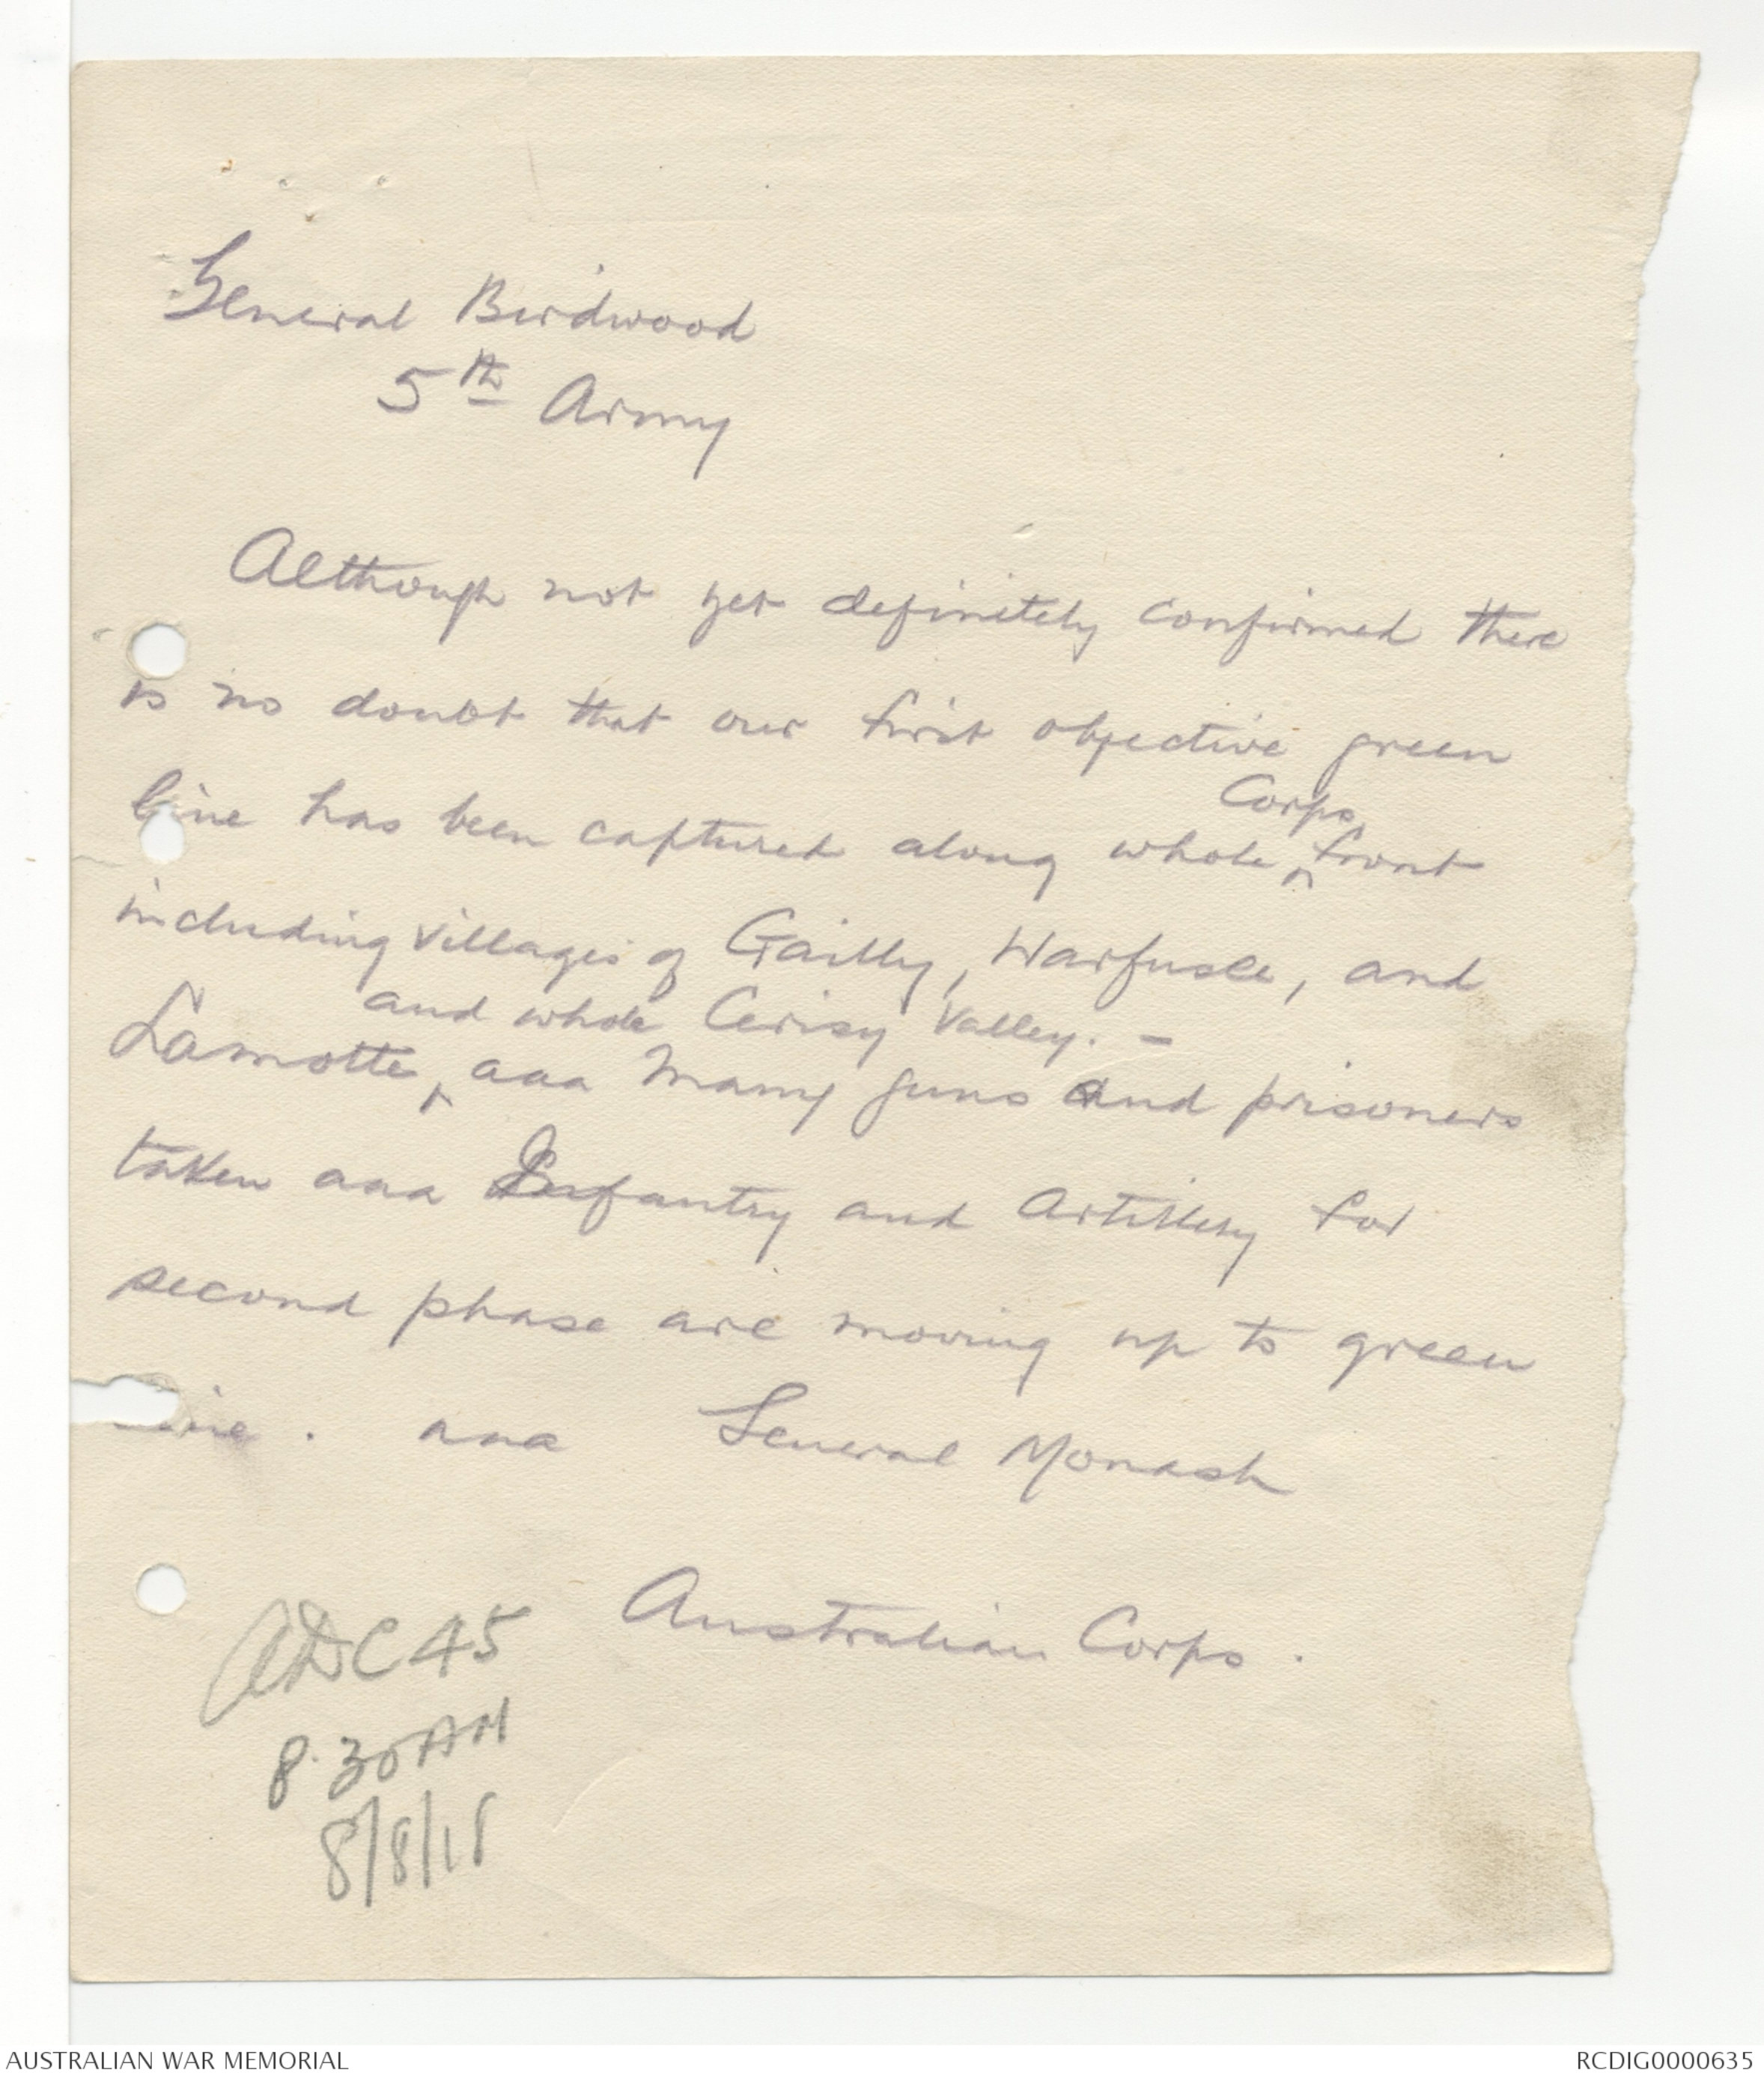 General Birdwood
5th Army
Although not yet definitely confirmed there
is no doubt that our first objective green
line has been captured along whole Corps front
including villages of Gailly, Warfusee, and
Lamotte and whole Cerisy Valley. - aaa Many guns and prisoners
taken aaa Infantry and Artillery for
second phase are moving up to green
line. aaa General Monash
Australian Corps.
ADC 45
8.30 AM
8/8/18
AUSTRALIAN WAR MEMORIAL
RCDIG0000635